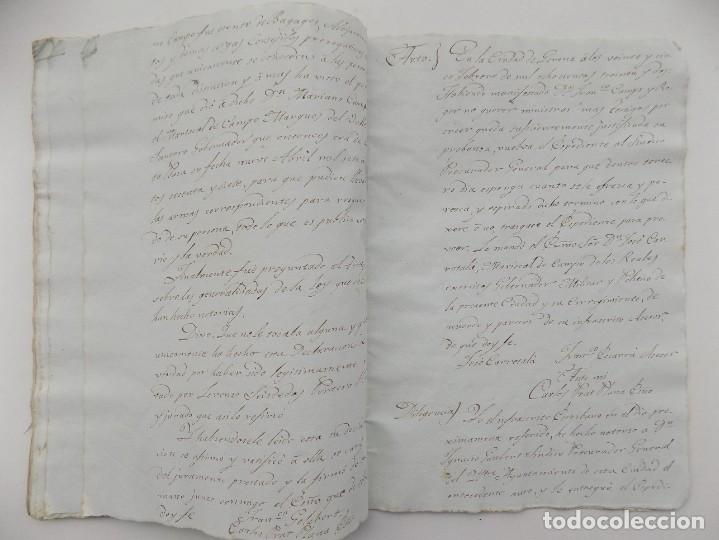 no Campo fue exento de Bagages, Alojamien
tos y demas cargas Consejiles prerrogativas
das que unicamente se concedian á las perso
de tal distincion y á mas ha visto el per
miso que dió á dicho Dn. Mariano Camps
el Mariscal de Campo Marques de
Gobernador que entonces era de
Plaza en fecha nueve Abril mil sete
tos setenta y siete, para que pudiese llevar
las armas correspondientes para resguar
do de su persona, todo lo que es publico noto
rio y la verdad.
Igualmente fue preguntado el
sobre las generalidades de la Ley que
han hecho notorias,
Dijo: Que no le tocaba alguna y que
unicamente ha hecho esta Declaracion
verdad por haber sido legitimamente
tado por Lorenzo Portero
y jurada que asi lo refirió.
Y habiendosele leido esta su declara
cion se afirmo y ratificó á ella en cargo
del juramento prestado y la firmó de su
mano junto conmigo el Esno que de
doy fe
Fran.co Gelabert
Carlos Prat Plana Esno
Auto.} En la Ciudad de Gerona á los veinte y cin
co Febrero de mil ochocientos treinta y dos:
Habiendo manifestado Dn. Fran.co Camps y Ro
ger no querer ministrar mas testigos por
creer queda suficientemente justificada su
probanza, vuelva el Expediente al Sindico
Procurador General para que dentro terce
ro dia esponga cuanto se le ofrezca y pa
rezca, y espirado dicho termino con lo que di
xere ó no, traigase el Expediente para pro
veer. Lo mandó el Exmo Sor. Dn. José Car
ratalá, Mariscal de Campo de los Reales
exercitos Gobernador Militar y Politico de
la presente Ciudad y su Corregimiento, de
acuerdo y parecer de su infrascrito Asesor
de que doy fe.
José Carratalá
Fran.co Asesor
Ante mi
Carlos Prat Plana Esno
Diligencia} Yo el infrascrito Escribano en el dia pro
ximamente referido, he hecho notorio á Dn.
Ignacio Sindico Procurador General
del Ylltre Ayuntamiento de esta Ciudad el
antecedente auto, y le entregué el Expedi
todocoleccion.net